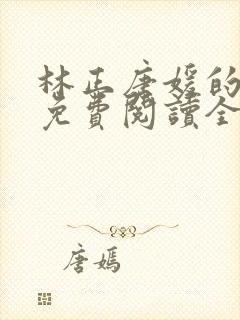 林正唐媛的
免費閱讀全
唐嫣